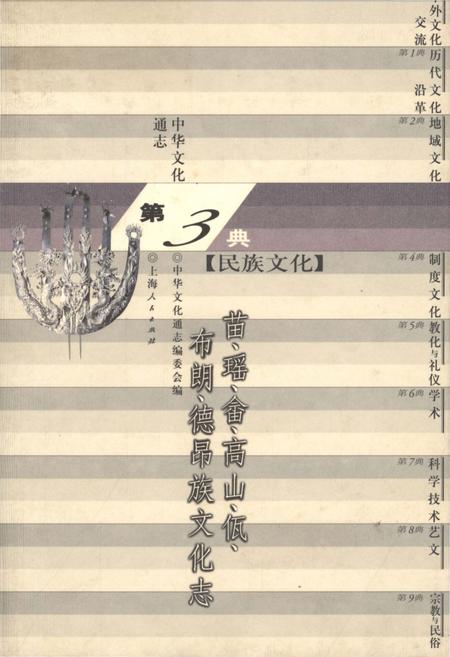 中外文化
交流
第1典
历代文化
沿革
第2典
地域文化
中华文化
通志
第3典
【民族文化】
◎中华文化通志编委会编
◎上海人民出版社
苗、瑶、畲、高山、佤、
布朗、德昂族文化志
第4典
制度文化
第5典
教化与礼仪
第6典
学术
第7典
科学技术
第8典
艺文
第9典
宗教与民俗